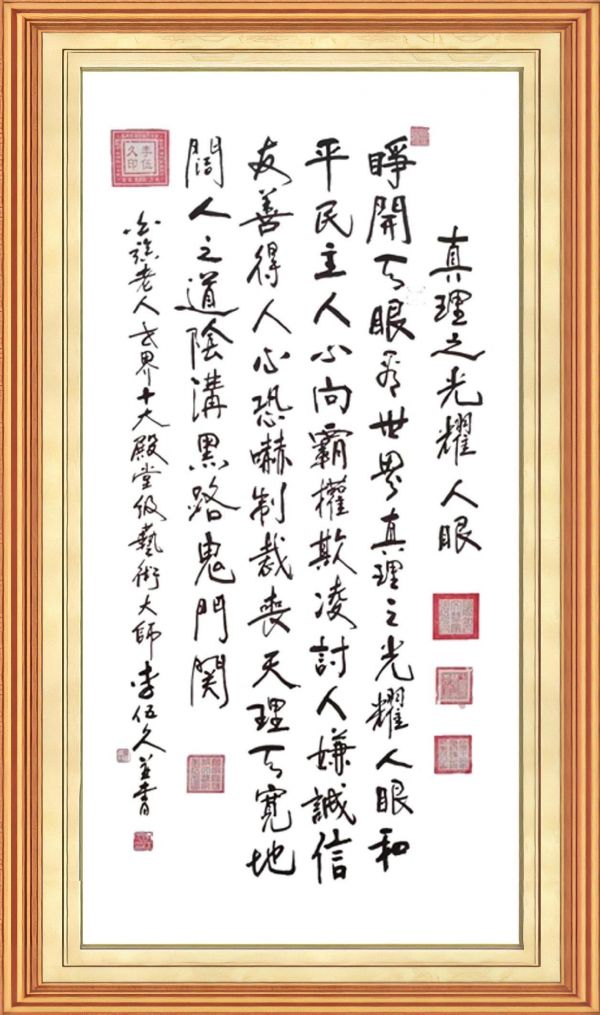 真理之光耀人眼
睜開天眼看世界真理之光耀人眼和
平民主人心向霸權欺凌討人嫌誠信
友善得人心恐嚇制裁喪天理天寬地
闊人之道陰溝黑路鬼門関
老人世界十大殿堂级藝術大師李伍久並書
李伍久印